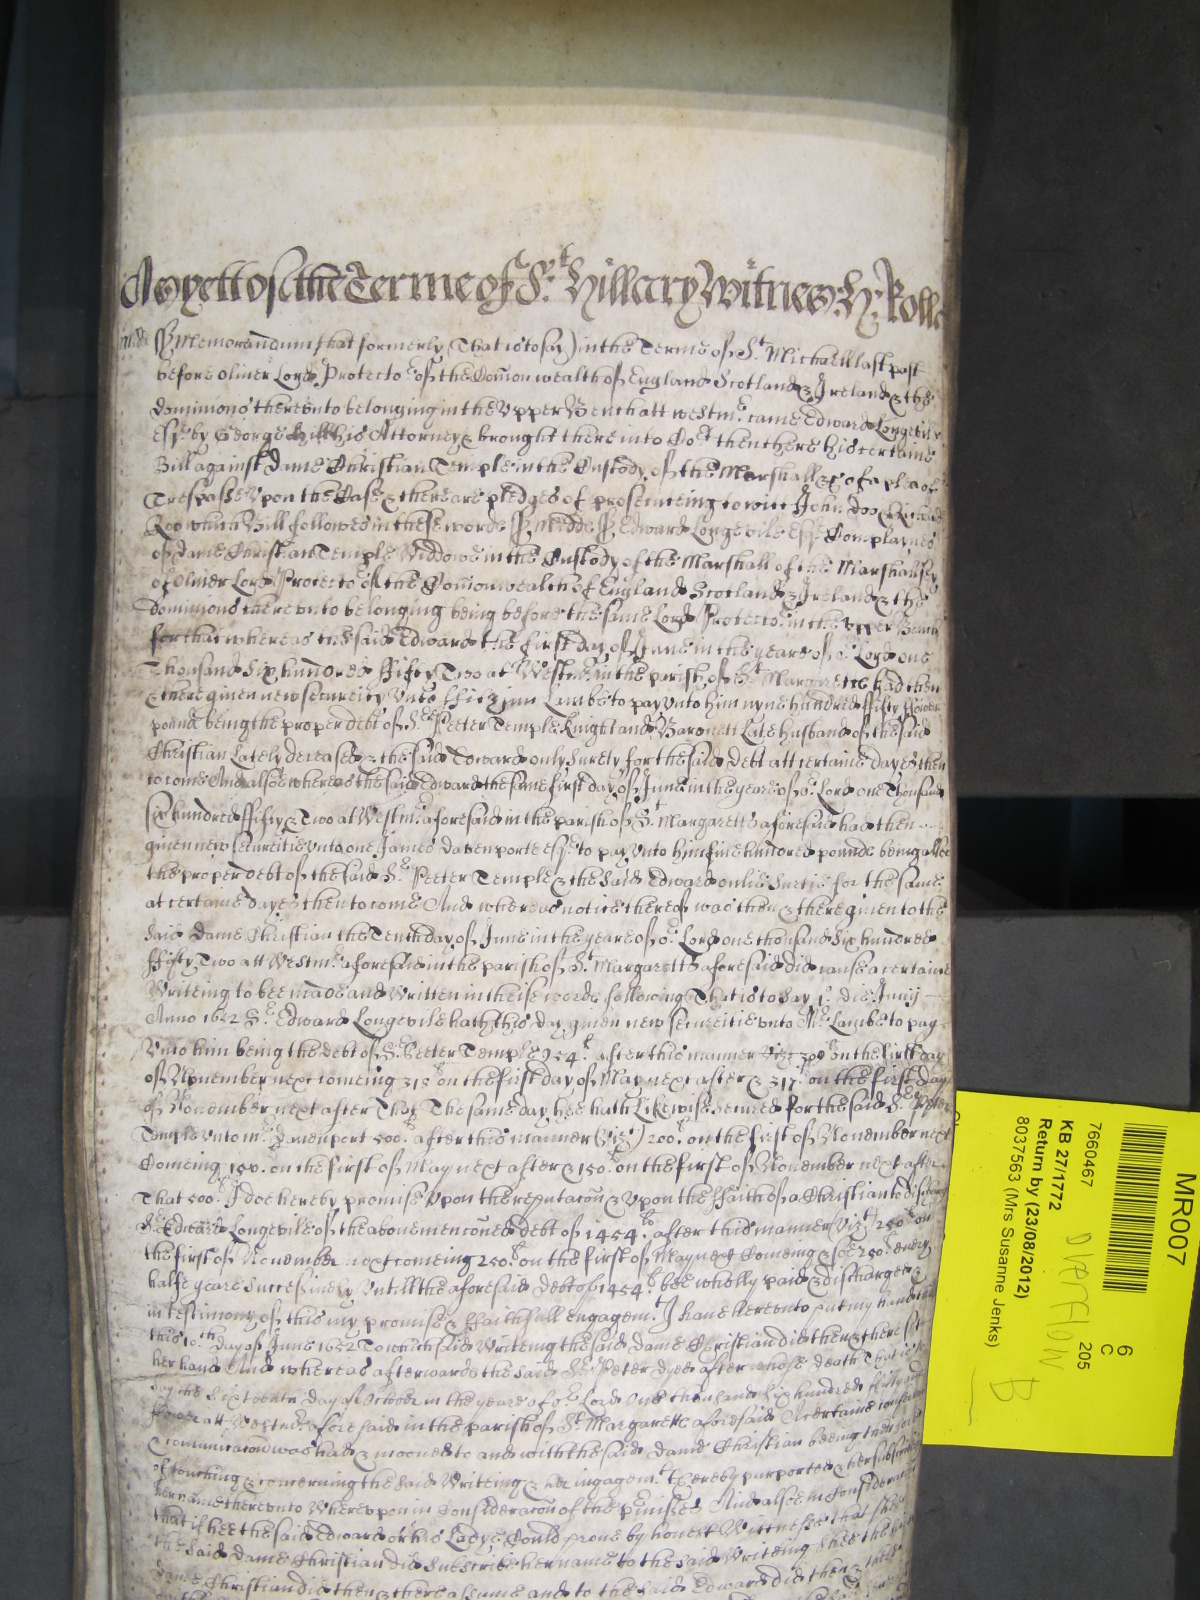 As yett of the Terme of St. Hillary Witnes H: Rolle
Midds ss Memorandum that formerly (That is to say) in the Terme of St Michaell last past
before Oliver Lord Protector of the Comon wealth of England Scotland & Ireland & the
dominions thereunto belonging in the Upper Bench att Westmr. came Edward Longevile
Esqr. by George Hill his Attorney & brought there into Cort then there his certaine
Bill against Dame Christian Temple in the Custody of the Marshall &c of a plea of
Trespasse Upon the Case & there are pledges of prosecuteing to witt John Doo & Richard
Roo which Bill followes in these words ss Midds ss Edward Longevile Esqr. Complaynes
of Dame Christian Temple Widdowe in the Custody of the Marshall of the Marshalsey
of Oliver Lord Protector of the Comonwealth of England Scotland & Ireland & the
dominions thereunto belonging being before the same Lord Protector. in the upper Bench
for that whereas the said Edward the first day of June in the yeare of or. Lord one
Thousand Six hundred ffifty Two at Westmr. in the parish of St. Margaretts had then
& there given new securcity Unto ffitzjmn Lambe to pay unto him nyne hundred ffifty ffower
pound being the proper debt of Sr. Peeter Temple Knight and Baronett Late husband of the said
Christian Lately deceased & the said Edward only Surety for the said debt att certaine dayes then
to come And alsoe whereas the said Edward the same first day of June in the yeare of or. Lord one Thousand
six hundred ffifty & Two at Westmr. aforesaid in the parish of St. Margaretts aforesaid had then
given new securitie unto one James Davenporte esqr. to pay unto him five hundred pounds being alsoe
the proper debt of the said Sr. Peeter Temple & the said Edward onlie Suertie for the same
at certaine dayes then to come And whereas notice thereof was then & there given to the
said Dame Christian the Tenth day of June in the yeare of or. Lord one thousand Six hundred
ffifty Two att Westmr. aforesaid in the parish of St. Margaretts aforesaid did cause a certaine
Writeing to bee made and Written in theise words following That is to say 1o. die Junij
Anno 1652 Sr. Edward Longevile hath this day given new securcitie unto Mr. Lambe to pay
Unto him being the debt of Sr. Peeter Temple 954l. after this manner Vizt 300l on the first day
of November next comeing 318l on the first day of May next after & 317l. on the first day
of November next after That The same day hee hath Likewise secured for the said Sr. Peter
Temple Unto mr. Davenport 500l. after this manner (Vizt) 200l. on the first of November next
Comeing 150l. on the first of May next after & 150l. on the first of November next after
That 500l. I doe hereby promise Upon the reputacon & Upon the ffaith of a Christian to discharge
Sr Edward Longevile of the abovemenconed debt of 1454l. after this manner (Vizt) 250l on
the first of November next comeing 250l. on the first of May next Comeing & soe 250l. every
halfe yeare Successively Untill the aforesaid debt of 1454l. bee wholly paid & discharged &
in testimony of this my promise & ffaithfull engagemt. I have hereunto putt my hand
this 10th. day of June 1652 To which said Writeing the said Dame Christian did then & there sett
her hand And whereas afterwards the said Sr. Peter dyed after whose death That is to
say the Sixteenth day of October in the yeare of or. Lord One thousand Six hundred ffiftie
fower att Westmr. aforesaid in the parish of St. Margarette aforesaid A certaine
& communicacon was had & mooved to and with the said Dame Christian beeing then
of touching & concerning the said Writeing & her ingagemt. thereby purported & her subscribing
her name thereunto Whereupon in Consideracon of the pmisses And alsoe in Consideracon
that if hee the said Edward or his Lady Could prove by honest Wittnesse that shee
the said Dame Christian did Subscribe her name to the said Writeing Shee the said
Dame Christian did then & there assume and to the said Edward did then & there
MR007
6
C
205
7660467
KB 27/1772
Return by (23/08/2012)
8037563 (Mrs Susanne Jenks)
OVERFLOW
B